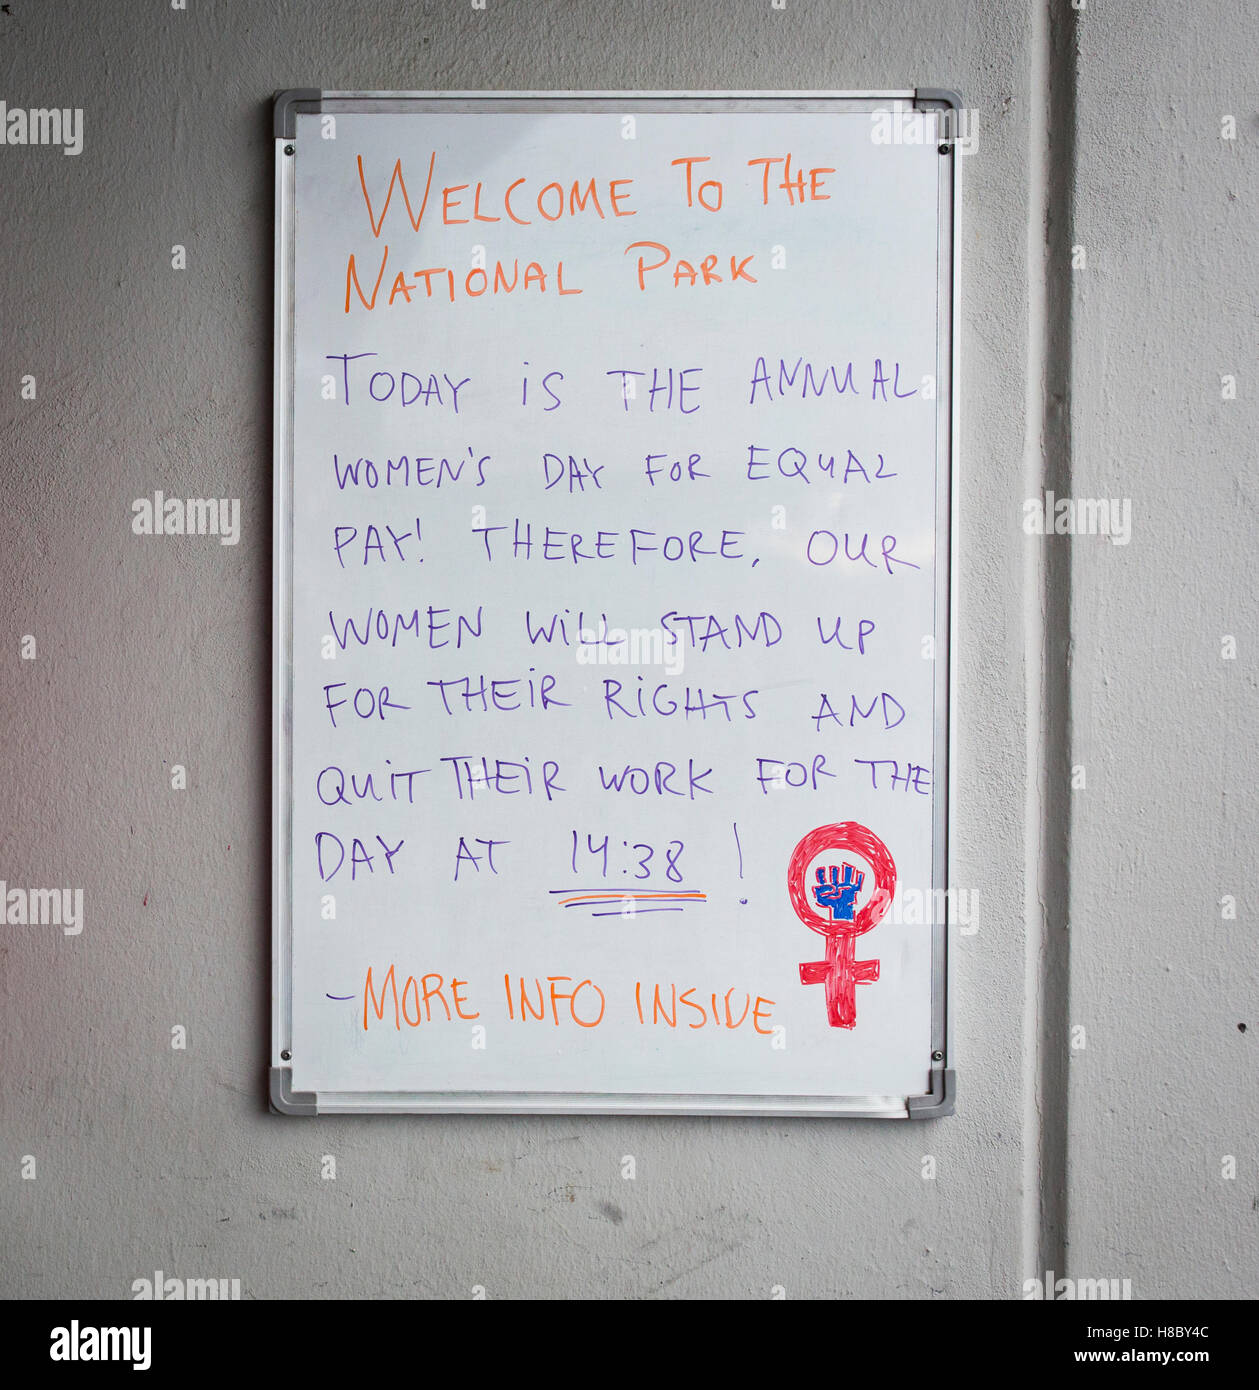 WELCOME TO THE
NATIONAL PARK
TODAY iS THE ANNUAL
WOMEN'S DAY FOR EQUAL
PAY! THEREFORE, OUR
WOMEN WiLL STAND UP
FOR THEiR RiGHTS AND
QUiT THEiR WORK FOR THE
DAY AT 14:38 !
- MORE INFO INSIDE
alamy stock photo
H8BY4C
www.alamy.com